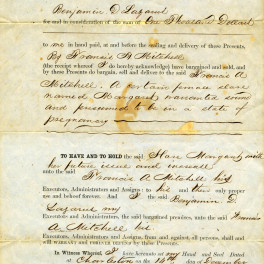 Benjamin D Lazarus
for and in consideration of the sum of One Thousand Dollars
to me in hand paid, at and before the sealing and delivery of these Presents,
By Francis A Mitchell
(the receipt whereof I do hereby acknowledge) have bargained and sold, and
by these Presents do bargain, sell and deliver to the said Francis A
Mitchell. A certain female slave
named Margaret, warranted sound
and presumed to be in a state of
pregnancy
TO HAVE AND TO HOLD the said Slave Margaret with
her future issue and increase
unto the said
Francis A Mitchell his
Executors, Administrators and Assigns: to his and their only proper
use and behoof forever. And I the said Benjamin D
Lazarus my
Executors and Administrators, the said bargained premises, unto the said Francis
A. Mitchell his
Executors, Administrators and Assigns, from and against, all persons, shall and
will WARRANT AND FOREVER DEFEND by these Presents.
In Witness Whereof, I have hereunto set my Hand and Seal Dated
at Charleston on the December